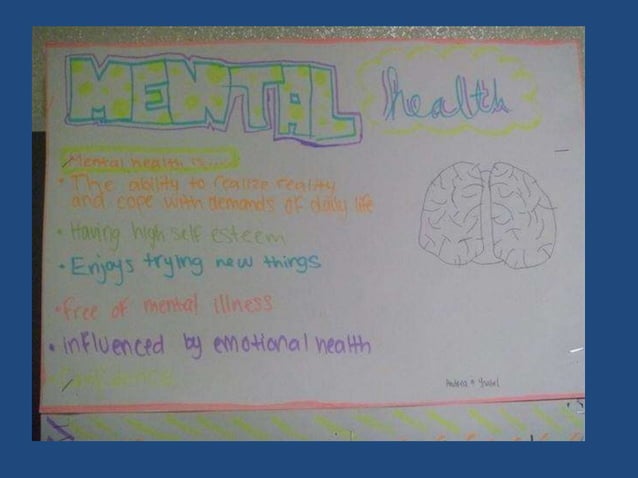 MENTAL health
Mental health is....
• The ability to realize reality
and cope with demands of daily life
• Having high self esteem
• Enjoys trying new things
• free of mental illness
• influenced by emotional health
• Confidence
Andrea +